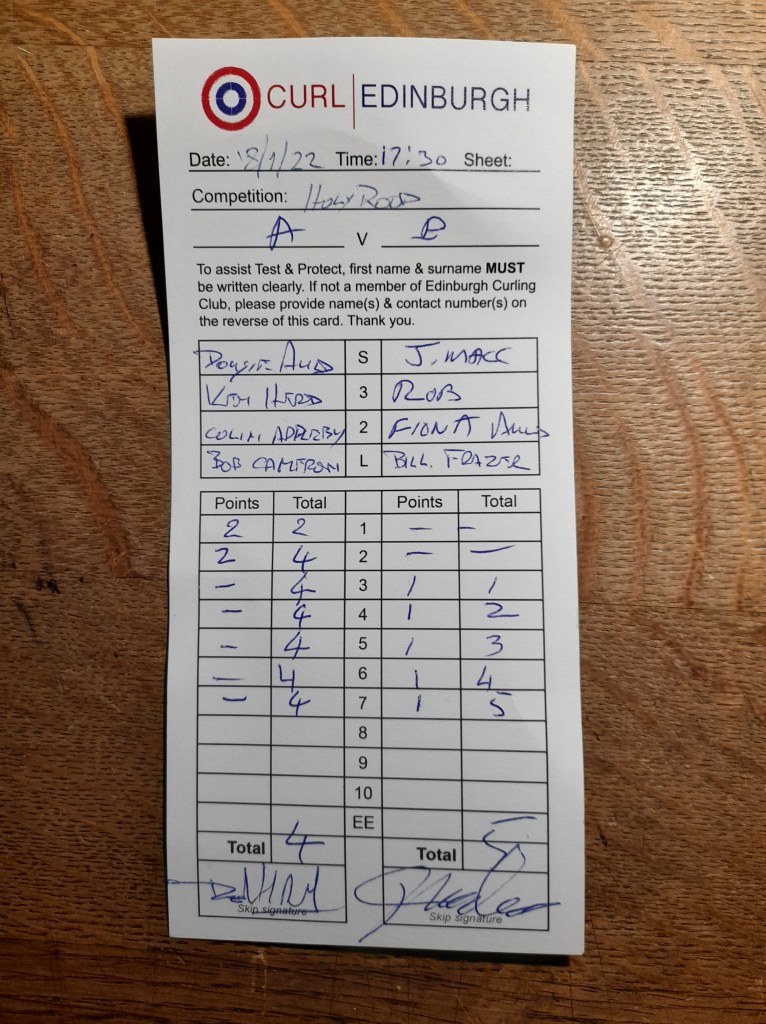 CURL EDINBURGH
Date: 18/1/22 Time: 17:30 Sheet:
Competition: HOLYROOD
A V B
To assist Test & Protect, first name & surname MUST
be written clearly. If not a member of Edinburgh Curling
Club, please provide name(s) & contact number(s) on
the reverse of this card. Thank you.
S J. MACC
KEN HERD 3 ROB
COLIN APPLEBY 2 FIONA
BOB CAMERON L BILL FRAZER
Points Total Points Total
2 2 1 – –
2 4 2 – –
– 4 3 1 1
– 4 4 1 2
– 4 5 1 3
– 4 6 1 4
– 4 7 1 5
8
9
10
EE
Total 4 Total 5
Skip signature Skip signature